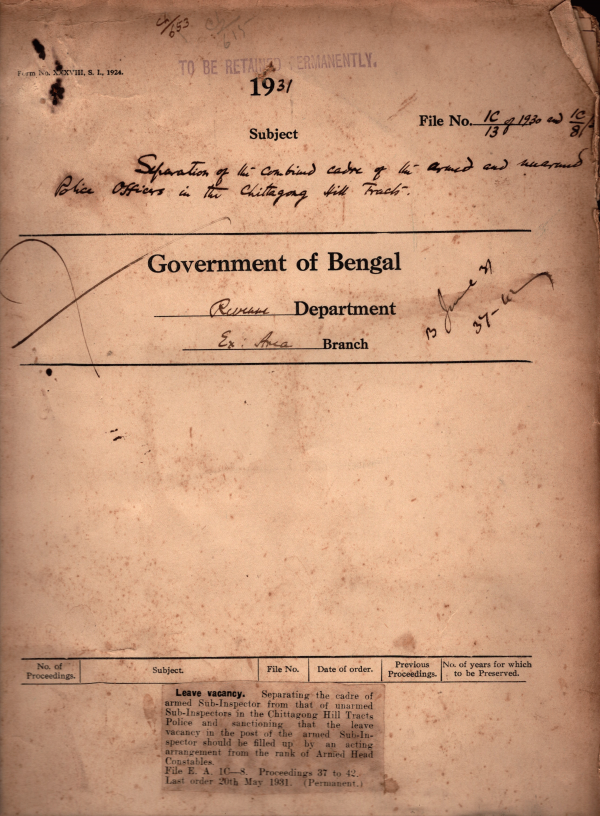 Form No. XXXVIII, S. I., 1924.
TO BE RETAINED PERMANENTLY.
1931
File No. 1C/13 of 1930 and 1C/8
Subject
Separation of the combined cadre of the armed and unarmed
Police Officers in the Chittagong Hill Tracts.
Government of Bengal
Revenue Department
Ex. Area Branch
B June 31
37-42
No. of Proceedings. Subject. File No. Date of order. Previous Proceedings. No. of years for which to be Preserved.
Leave vacancy. Separating the cadre of
armed Sub-Inspector from that of unarmed
Sub-Inspectors in the Chittagong Hill Tracts
Police and sanctioning that the leave
vacancy in the post of the armed Sub-In-
spector should be filled up by an acting
arrangement from the rank of Armed Head
Constables.
File E. A. 1C—8. Proceedings 37 to 42.
Last order 20th May 1931. (Permanent.)